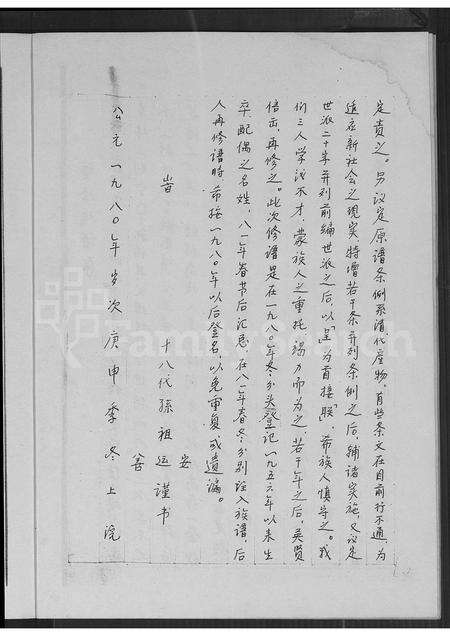 定责之。另议定原谱条例系清代产物，有些条文在目前行不通，为
适应新社会之现实，特增若干条并列条例之后，辅诸实施，又议定
世派二十字并列前编世派之后，以「呈」为首接殿，希族人慎守之。我
们三人学浅不才，蒙族人之重托，竭力而为之，若干年之后，英贤
倍出，再修之。此次修谱是在一九八〇年冬分头登记一九五六年以来生
卒，配偶之名姓，八一年春节后汇总，在八一年春冬分别注入族谱，后
人再修谱时，希按一九八〇年以后登名，以免重复或遗漏。
安
昔
十八代孙祖运谨书
善
公元一九八〇年岁次庚申季冬上浣
FamilySearch